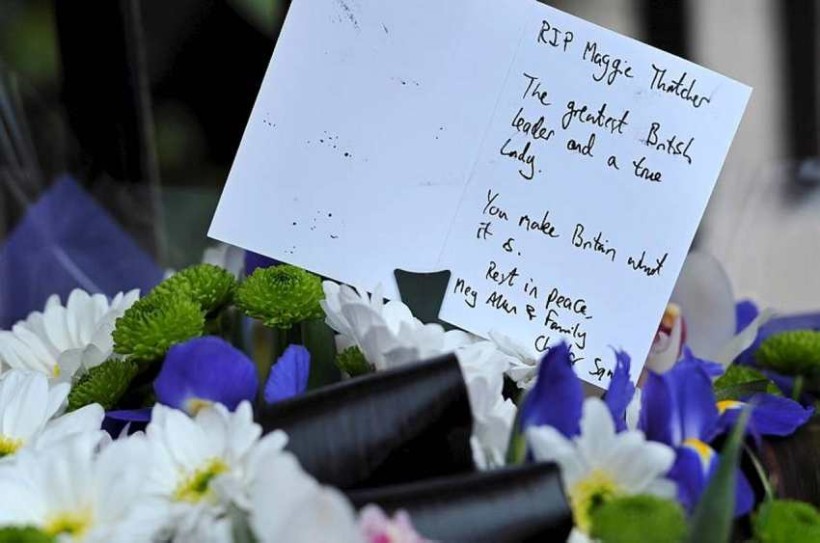 RIP Maggie Thatcher
The greatest British
leader and a true
Lady.
You make Britain what
it is.
Rest in peace,
Meg Allan & Family